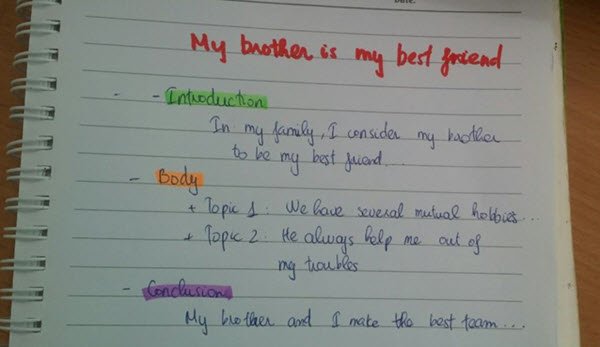 Date.
My brother is my best friend
- - Introduction
In my family, I consider my brother
to be my best friend...
- Body
+ Topic 1: We have several mutual hobbies...
+ Topic 2: He always help me out of
my troubles
- Conclusion
My brother and I make the best team...